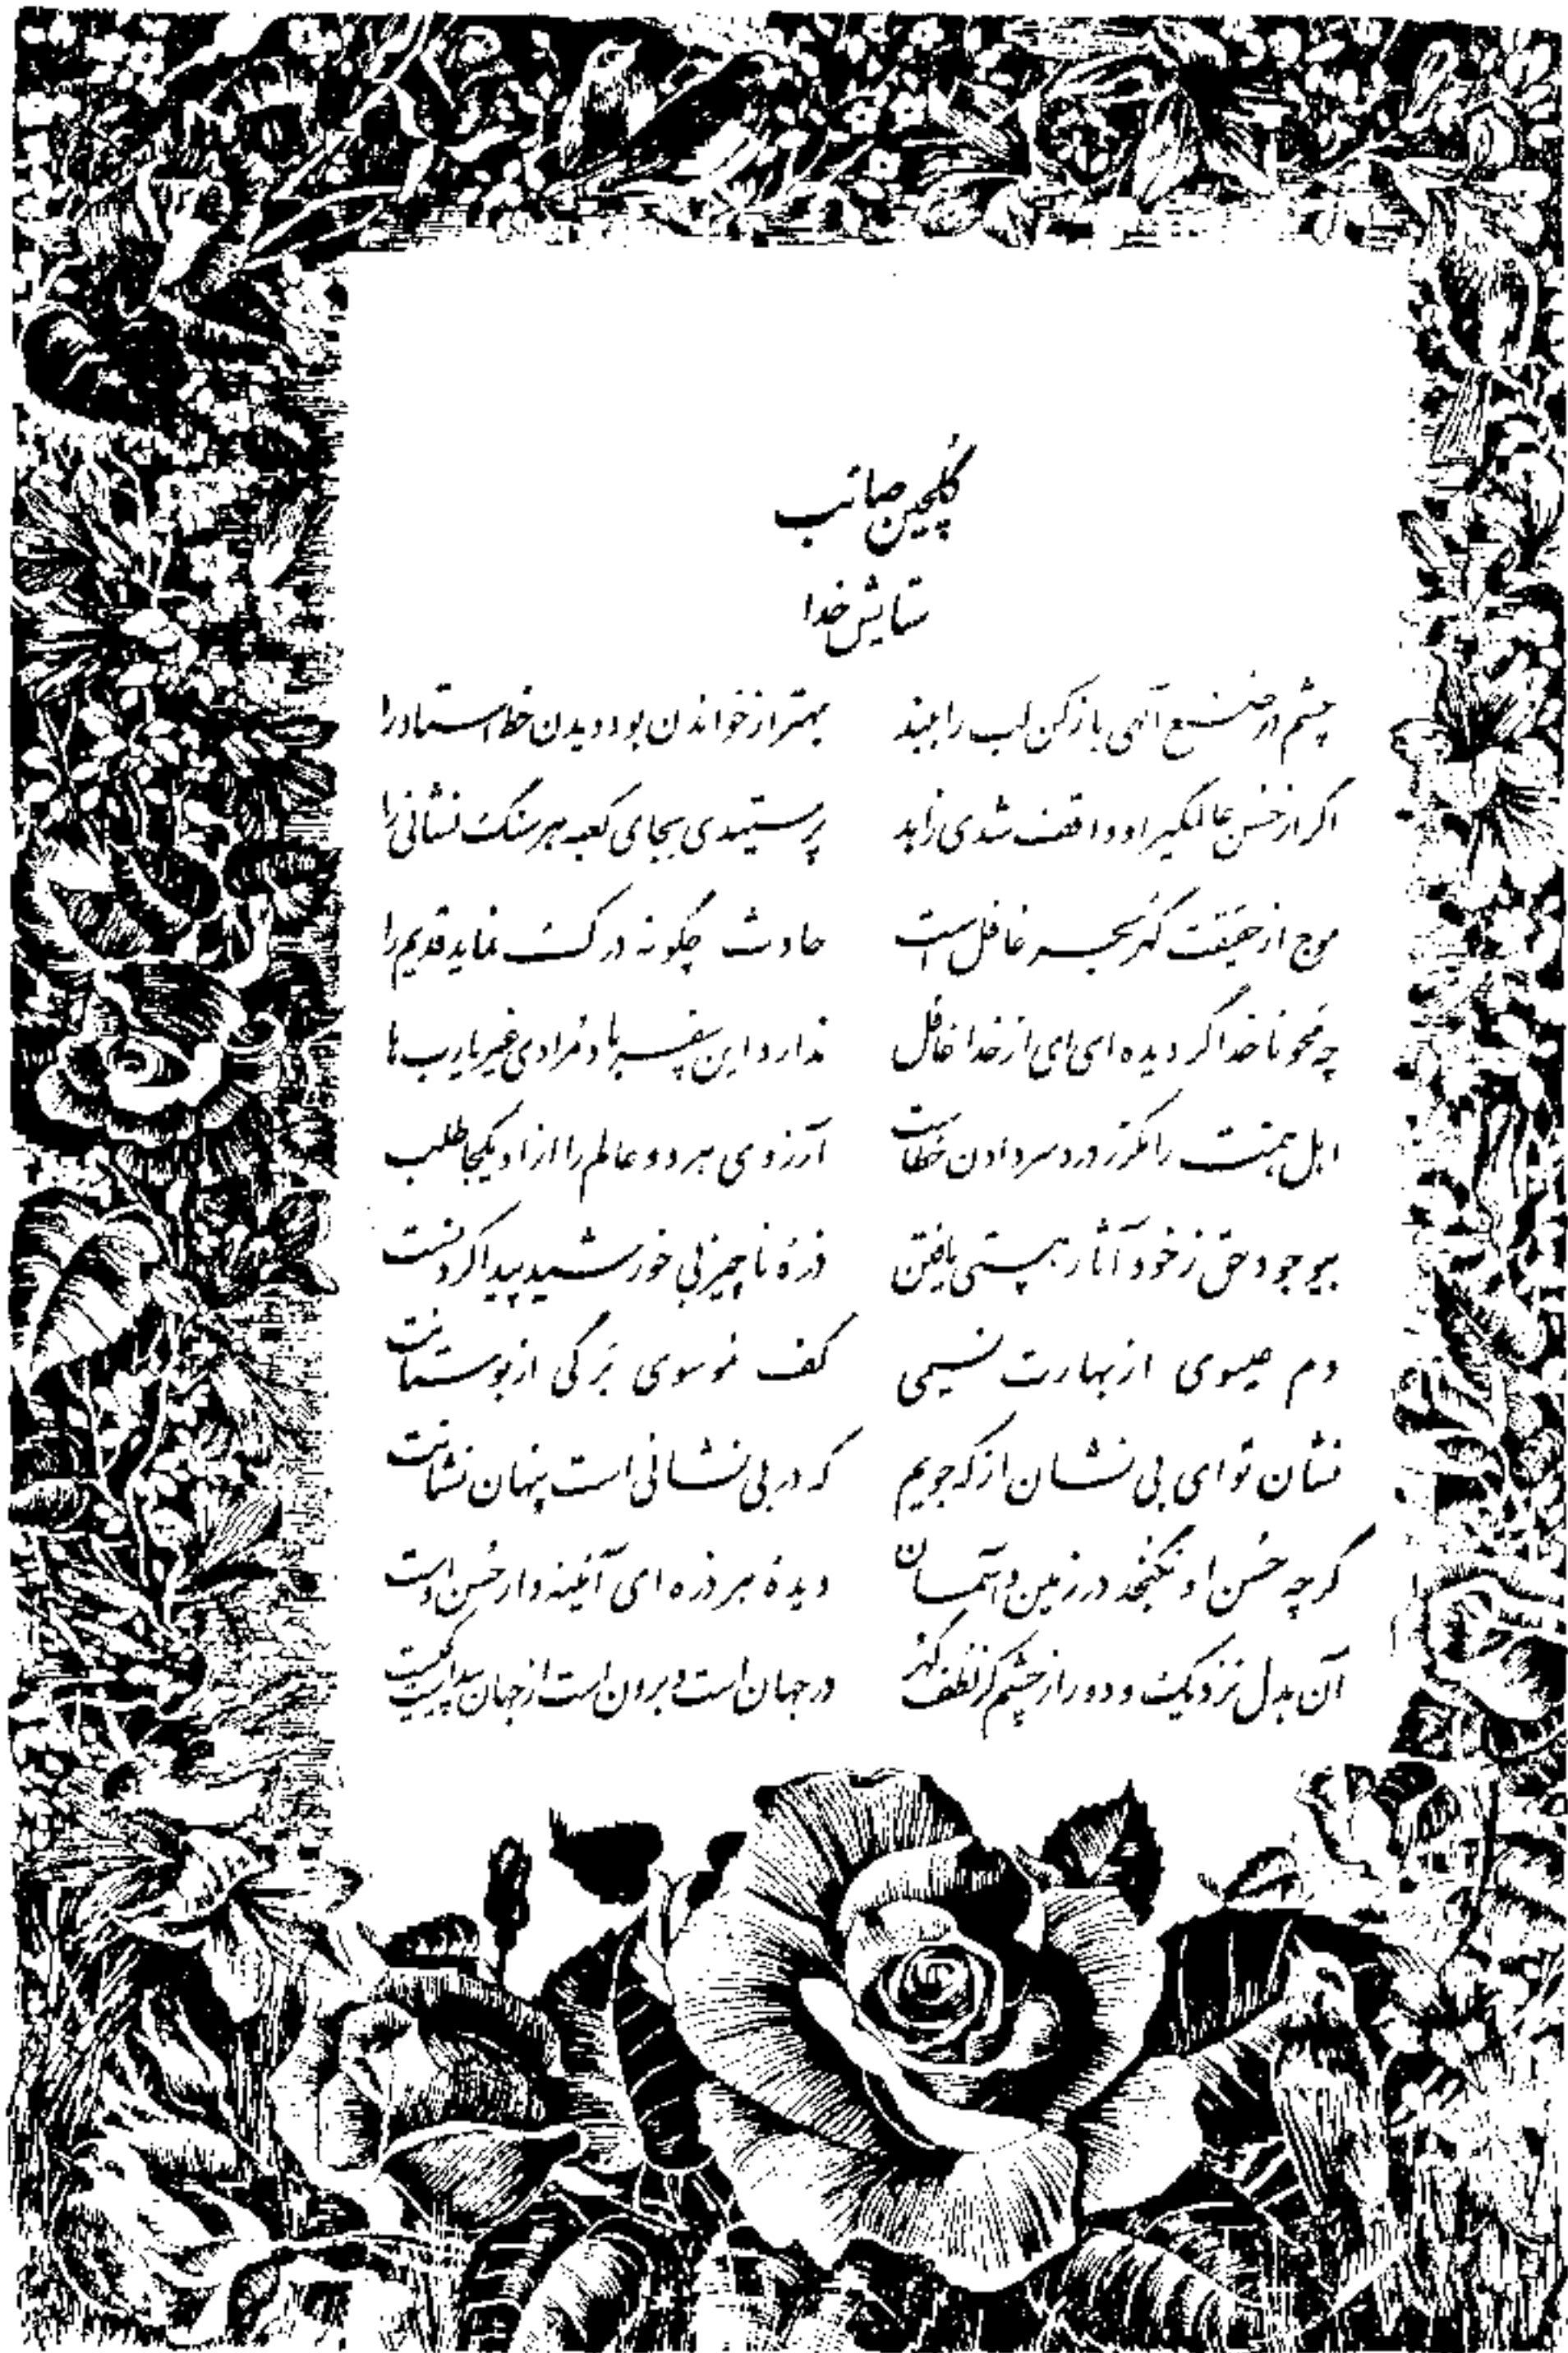 گلچین صائب
ستایش خدا
چشم در صنع آلهی باز کن لب را ببند بهتر از خواندن بود دیدن خط استاد را
اگر از حُسن عالمگیر او واقف شدی زاهد پرستیدی بجای کعبه هر سنگ نشانی را
موج از حقیقت گهر بحر غافل است حادث چگونه درک نماید قدیم را
چه محو ناخدا گردیده ای ای از خدا غافل ندارد این سفر باد مُرادی غیر یارب ها
اهل همّت را مکرّر دردسر دادن خطاست آرزوی هر دو عالم را از او یکجا طلب
بیوجود حق ز خود آثار هستی یافتن ذرهٔ ناچیز بی خورشید پیدا کردنست
دم عیسوی از بهارت نسیمی کف موسوی برگی از بوستانت
نشان تو ای بی نشان از که جویم که در بی نشانی است پنهان نشانت
گر چه حُسن او نگنجد در زمین و آسمان دیدهٔ هر ذره ای آئینه دار حُسن اوست
آن بدل نزدیک و دور از چشم کز لطف گهر در جهان است و برون است از جهان پیداست کیست